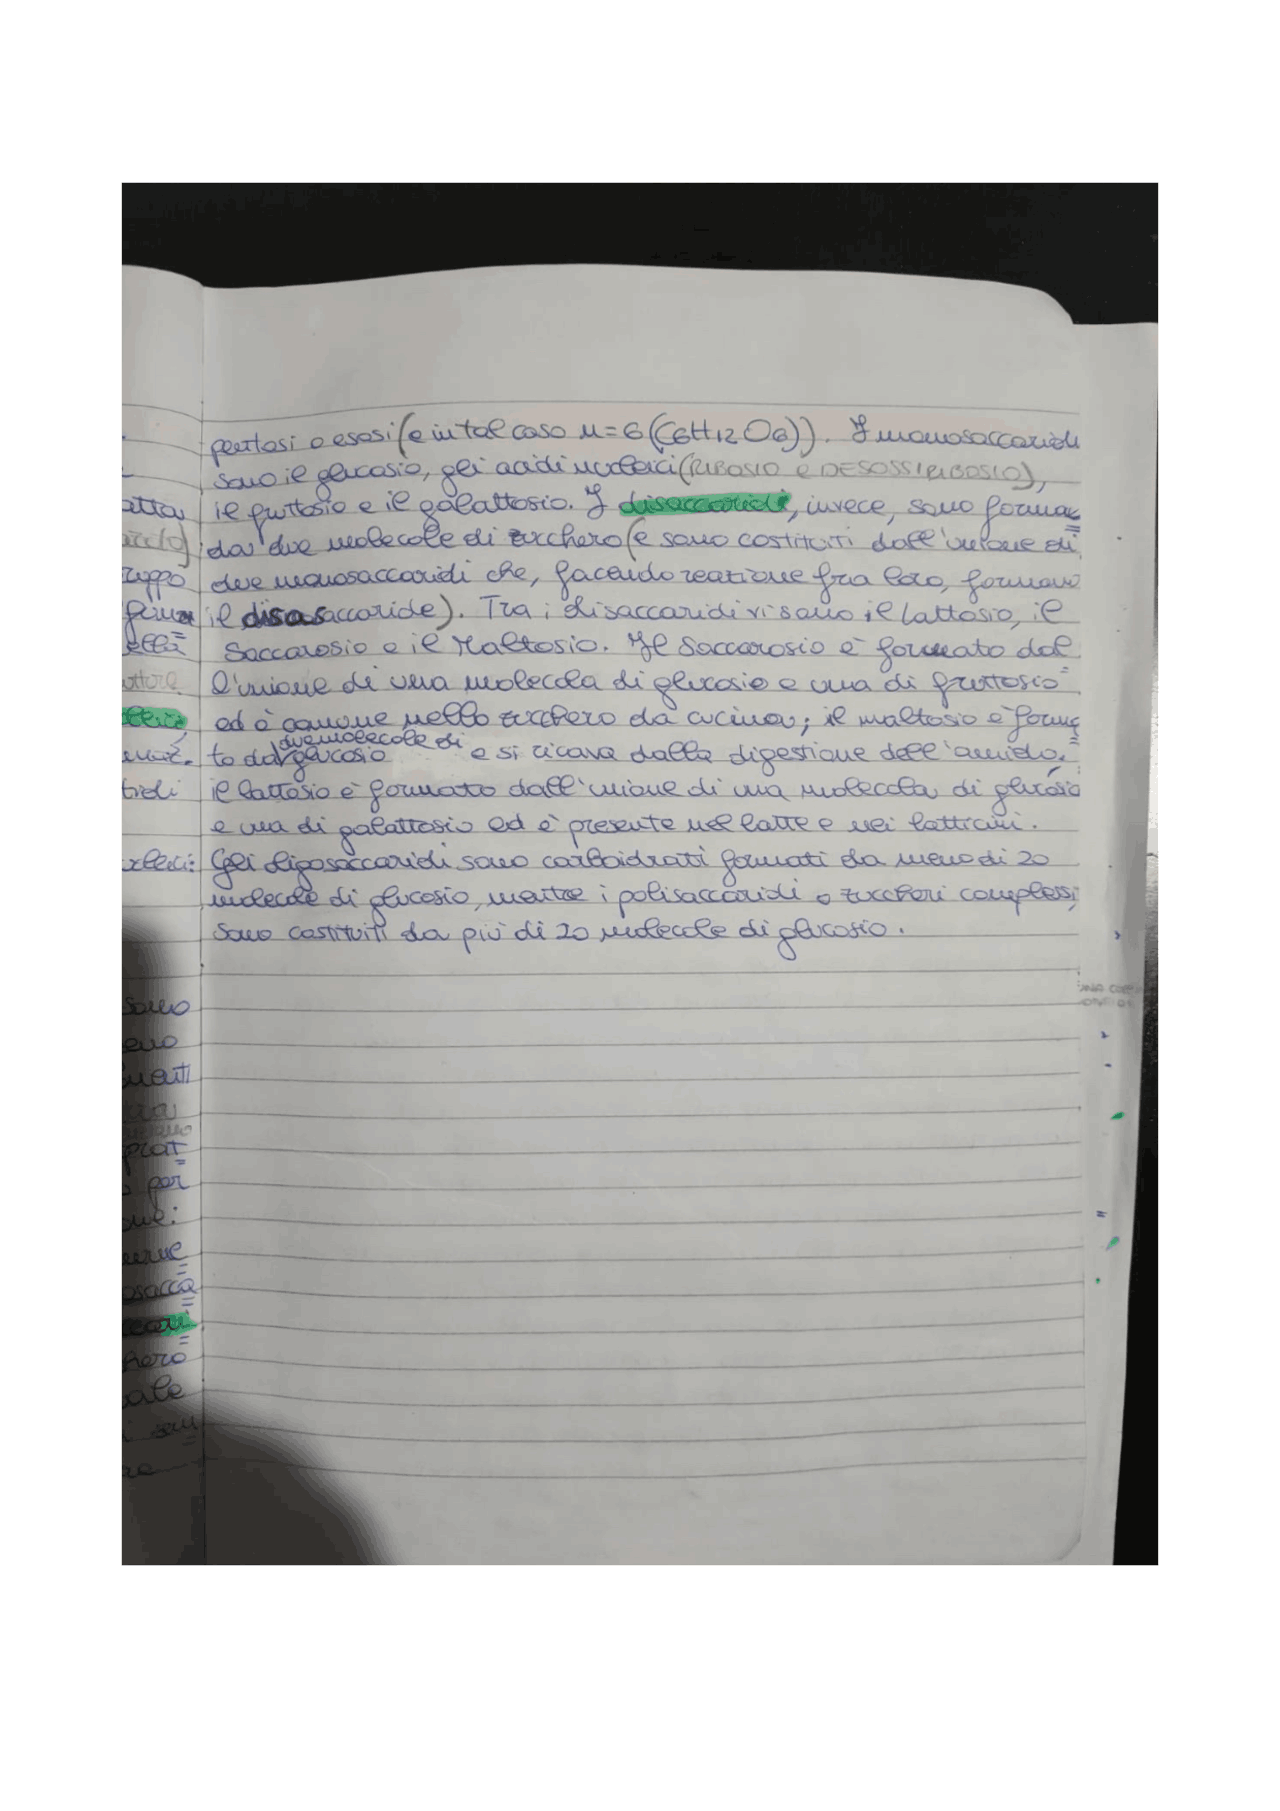 pentosi o esosi (e in tal caso n=6 (C6H12O6)). I monosaccaridi
sono il glucosio, gli acidi nucleici (RIBOSIO e DESOSSIRIBOSIO),
il fruttosio e il galattosio. I disaccaridi, invece, sono formac
da due molecole di zucchero (e sono costituiti dall'unione di
due monosaccaridi che, facendo reazione fra loro, formano
il disasaccaride). Tra i disaccaridi vi sono il lattosio, il
Saccarosio e il Maltosio. Il Saccarosio è formato dal
l'unione di una molecola di glucosio e una di fruttosio
ed è comune nello zucchero da cucina; il maltosio è forma
due molecole di
to da glucosio e si ricava dalla digestione dell'amido.
il lattosio è formato dall'unione di una molecola di glucosio
e una di galattosio ed è presente nel latte e nei latticini.
Gli oligosaccaridi sono carboidrati formati da meno di 20
molecole di glucosio, mentre i polisaccaridi o zuccheri complessi,
sono costituiti da più di 20 molecole di glucosio.
atta
uppo
ella
uttore
tridi
sono
eno
menti
per
osacca
hero
ale